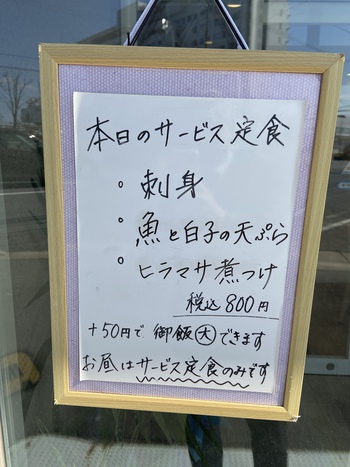 本日のサービス定食
。刺身
。魚と白子の天ぷら
。ヒラマサ煮つけ
税込800円
+50円で御飯大できます
お昼はサービス定食のみです